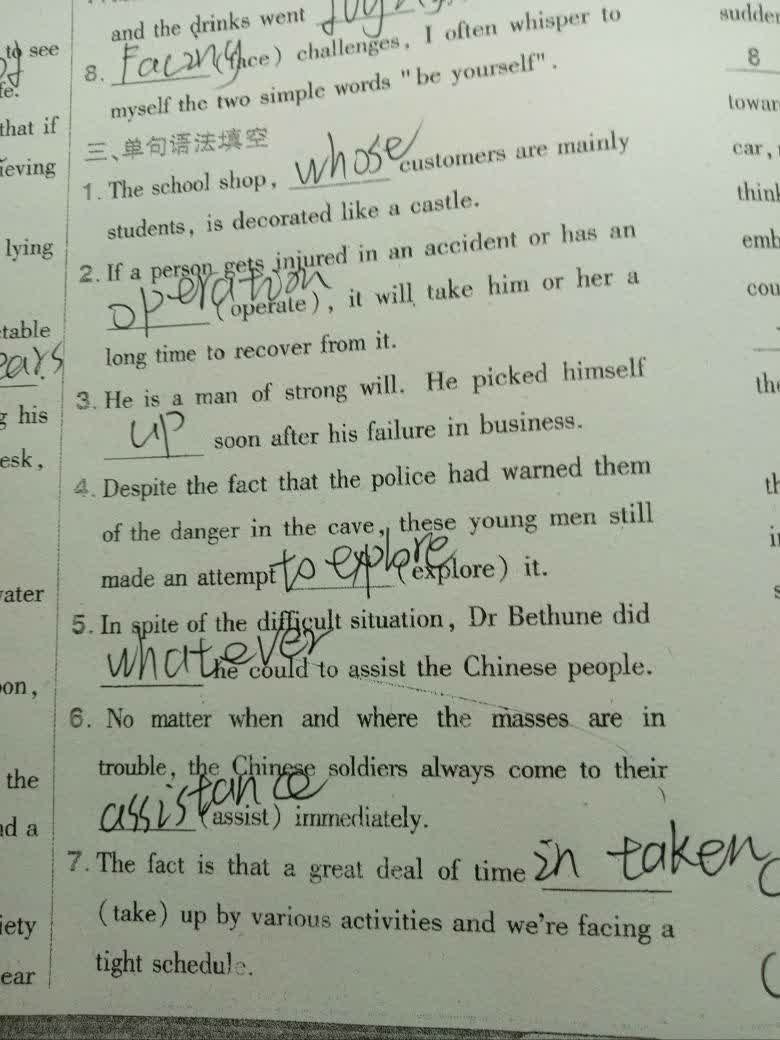 to see
fe.
that if
ieving
lying
table
ears
g his
esk,
water
on,
the
nd a
iety
ear
and the drinks went
8. Facing (face) challenges, I often whisper to
myself the two simple words "be yourself".
三、单句语法填空
1. The school shop, whose customers are mainly
students, is decorated like a castle.
2. If a person gets injured in an accident or has an
operation (operate), it will take him or her a
long time to recover from it.
3. He is a man of strong will. He picked himself
up soon after his failure in business.
4. Despite the fact that the police had warned them
of the danger in the cave, these young men still
made an attempt to explore (explore) it.
5. In spite of the difficult situation, Dr Bethune did
whatever he could to assist the Chinese people.
6. No matter when and where the masses are in
trouble, the Chinese soldiers always come to their
assistance (assist) immediately.
7. The fact is that a great deal of time in taken
(take) up by various activities and we're facing a
tight schedule.
sudden
8
towar
car,
think
emb
cou
the
th
i
s